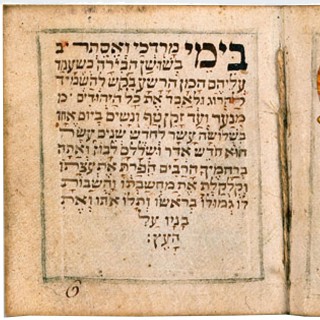 בימי מרדכי ואסתר ב
בשושן הבירה כשעמד
עליהם המן הרשע בקש להשמיד
להרוג ולאבד את כל היהודים
מנער ועד זקן טף ונשים ביום אחד
בשלושה עשר לחדש שנים עשר
הוא חדש אדר ושללם לבוז ואתה
ברחמיך הרבים הפרת את עצתו
וקלקלת את מחשבתו והשבות
לו גמולו בראשו ותלו אותו ואת
בניו על
העץ:
6